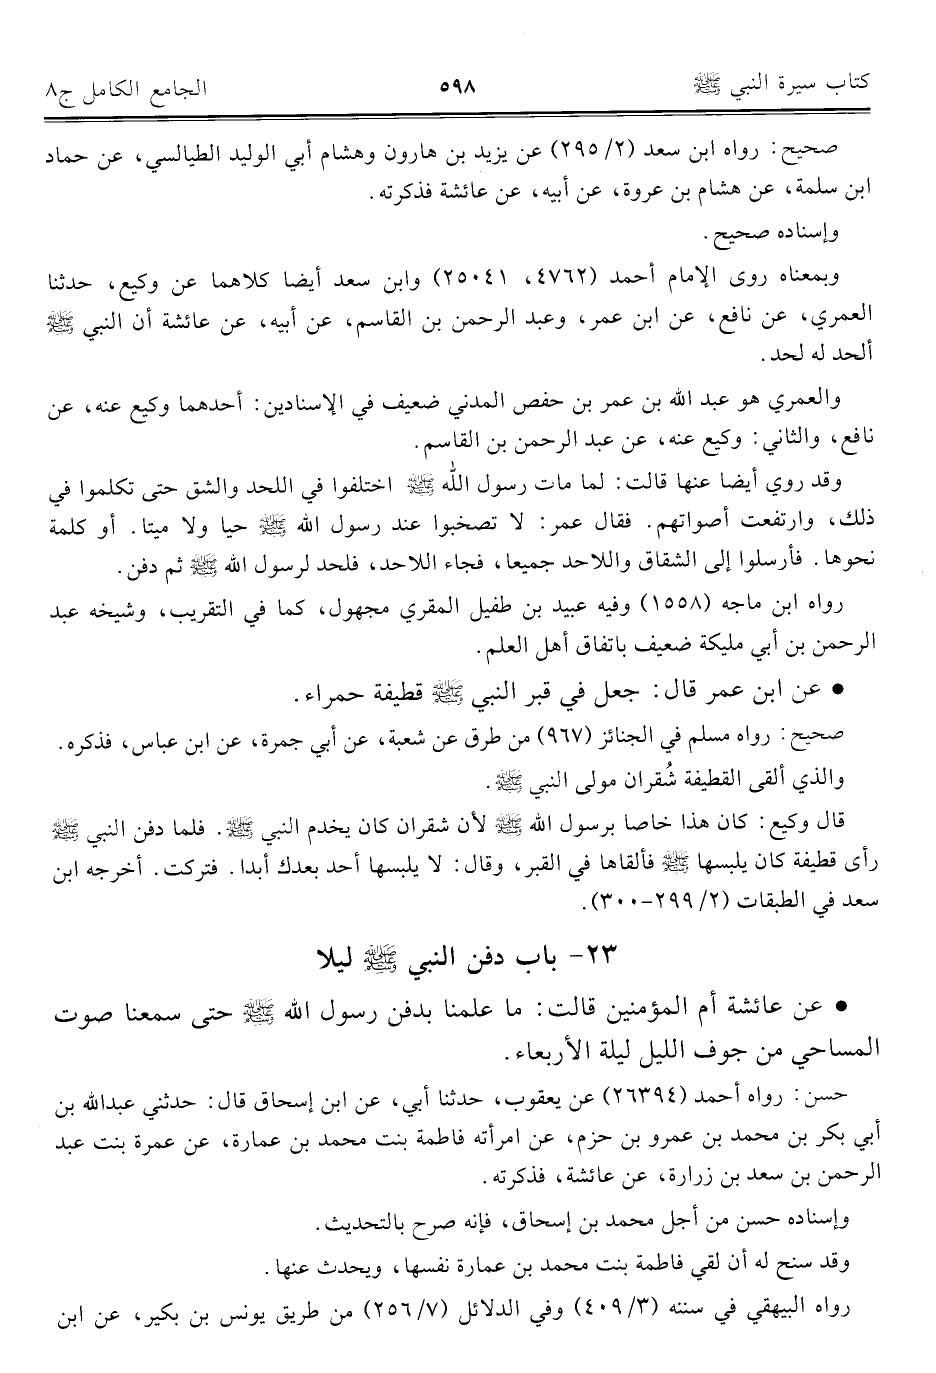 كتاب سيرة النبي ﷺ ٥٩٨ الجامع الكامل ج٨
صحيح: رواه ابن سعد (٢/ ٢٩٥) عن يزيد بن هارون وهشام أبي الوليد الطيالسي، عن حماد
ابن سلمة، عن هشام بن عروة، عن أبيه، عن عائشة فذكرته.
وإسناده صحيح.
وبمعناه روى الإمام أحمد (٤٧٦٢، ٢٥٠٤١) وابن سعد أيضا كلاهما عن وكيع، حدثنا
العمري، عن نافع، عن ابن عمر، وعبد الرحمن بن القاسم، عن أبيه، عن عائشة أن النبي ﷺ
ألحد له لحد.
والعمري هو عبد الله بن عمر بن حفص المدني ضعيف في الإسنادين: أحدهما وكيع عنه، عن
نافع، والثاني: وكيع عنه، عن عبد الرحمن بن القاسم.
وقد روي أيضا عنها قالت: لما مات رسول الله ﷺ اختلفوا في اللحد والشق حتى تكلموا في
ذلك، وارتفعت أصواتهم. فقال عمر: لا تصخبوا عند رسول الله ﷺ حيا ولا ميتا. أو كلمة
نحوها. فأرسلوا إلى الشقاق واللاحد جميعا، فجاء اللاحد، فلحد لرسول الله ﷺ ثم دفن.
رواه ابن ماجه (١٥٥٨) وفيه عبيد بن طفيل المقري مجهول، كما في التقريب، وشيخه عبد
الرحمن بن أبي مليكة ضعيف باتفاق أهل العلم.
• عن ابن عمر قال: جعل في قبر النبي ﷺ قطيفة حمراء.
صحيح: رواه مسلم في الجنائز (٩٦٧) من طرق عن شعبة، عن أبي جمرة، عن ابن عباس، فذكره.
والذي ألقى القطيفة شُقران مولى النبي ﷺ.
قال وكيع: كان هذا خاصا برسول الله ﷺ لأن شقران كان يخدم النبي ﷺ. فلما دفن النبي ﷺ
رأى قطيفة كان يلبسها ﷺ فألقاها في القبر، وقال: لا يلبسها أحد بعدك أبدا. فتركت. أخرجه ابن
سعد في الطبقات (٢/ ٢٩٩-٣٠٠).
٢٣- باب دفن النبي ﷺ ليلا
• عن عائشة أم المؤمنين قالت: ما علمنا بدفن رسول الله ﷺ حتى سمعنا صوت
المساحي من جوف الليل ليلة الأربعاء.
حسن: رواه أحمد (٢٦٣٩٤) عن يعقوب، حدثنا أبي، عن ابن إسحاق قال: حدثني عبدالله بن
أبي بكر بن محمد بن عمرو بن حزم، عن امرأته فاطمة بنت محمد بن عمارة، عن عمرة بنت عبد
الرحمن بن سعد بن زرارة، عن عائشة، فذكرته.
وإسناده حسن من أجل محمد بن إسحاق، فإنه صرح بالتحديث.
وقد سنح له أن لقي فاطمة بنت محمد بن عمارة نفسها، ويحدث عنها.
رواه البيهقي في سننه (٣/ ٤٠٩) وفي الدلائل (٧/ ٢٥٦) من طريق يونس بن بكير، عن ابن